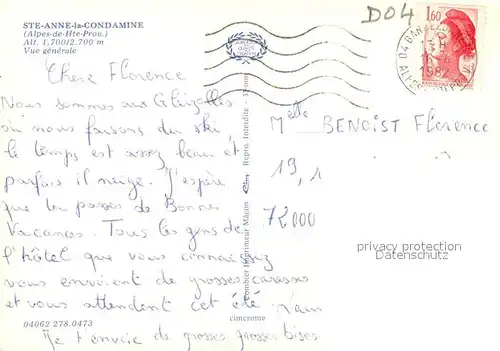 STE-ANNE-la-CONDAMINE
(Alpes-de-Hte-Prov.)
Alt. 1,700/2.700 m
Vue générale
D04
1,60
04 BARCELONNETTE
1982
Chère Florence
Nous sommes aux
où nous faisons du ski,
le temps est assez beau et
parfois il neige. J'espère
que tu passes de Bonnes
Vacances. Tous les gens de
l'hôtel que vous connaissez
vous envoient de grosses caresses
et vous attendent cet été
Je t'envoie de grosses grosses bises
04062 278.0473
Combier Imprimeur Mâcon
Repro. Interdite
cimcrome
Melle BENOIST Florence
19, 1
72000
privacy protection